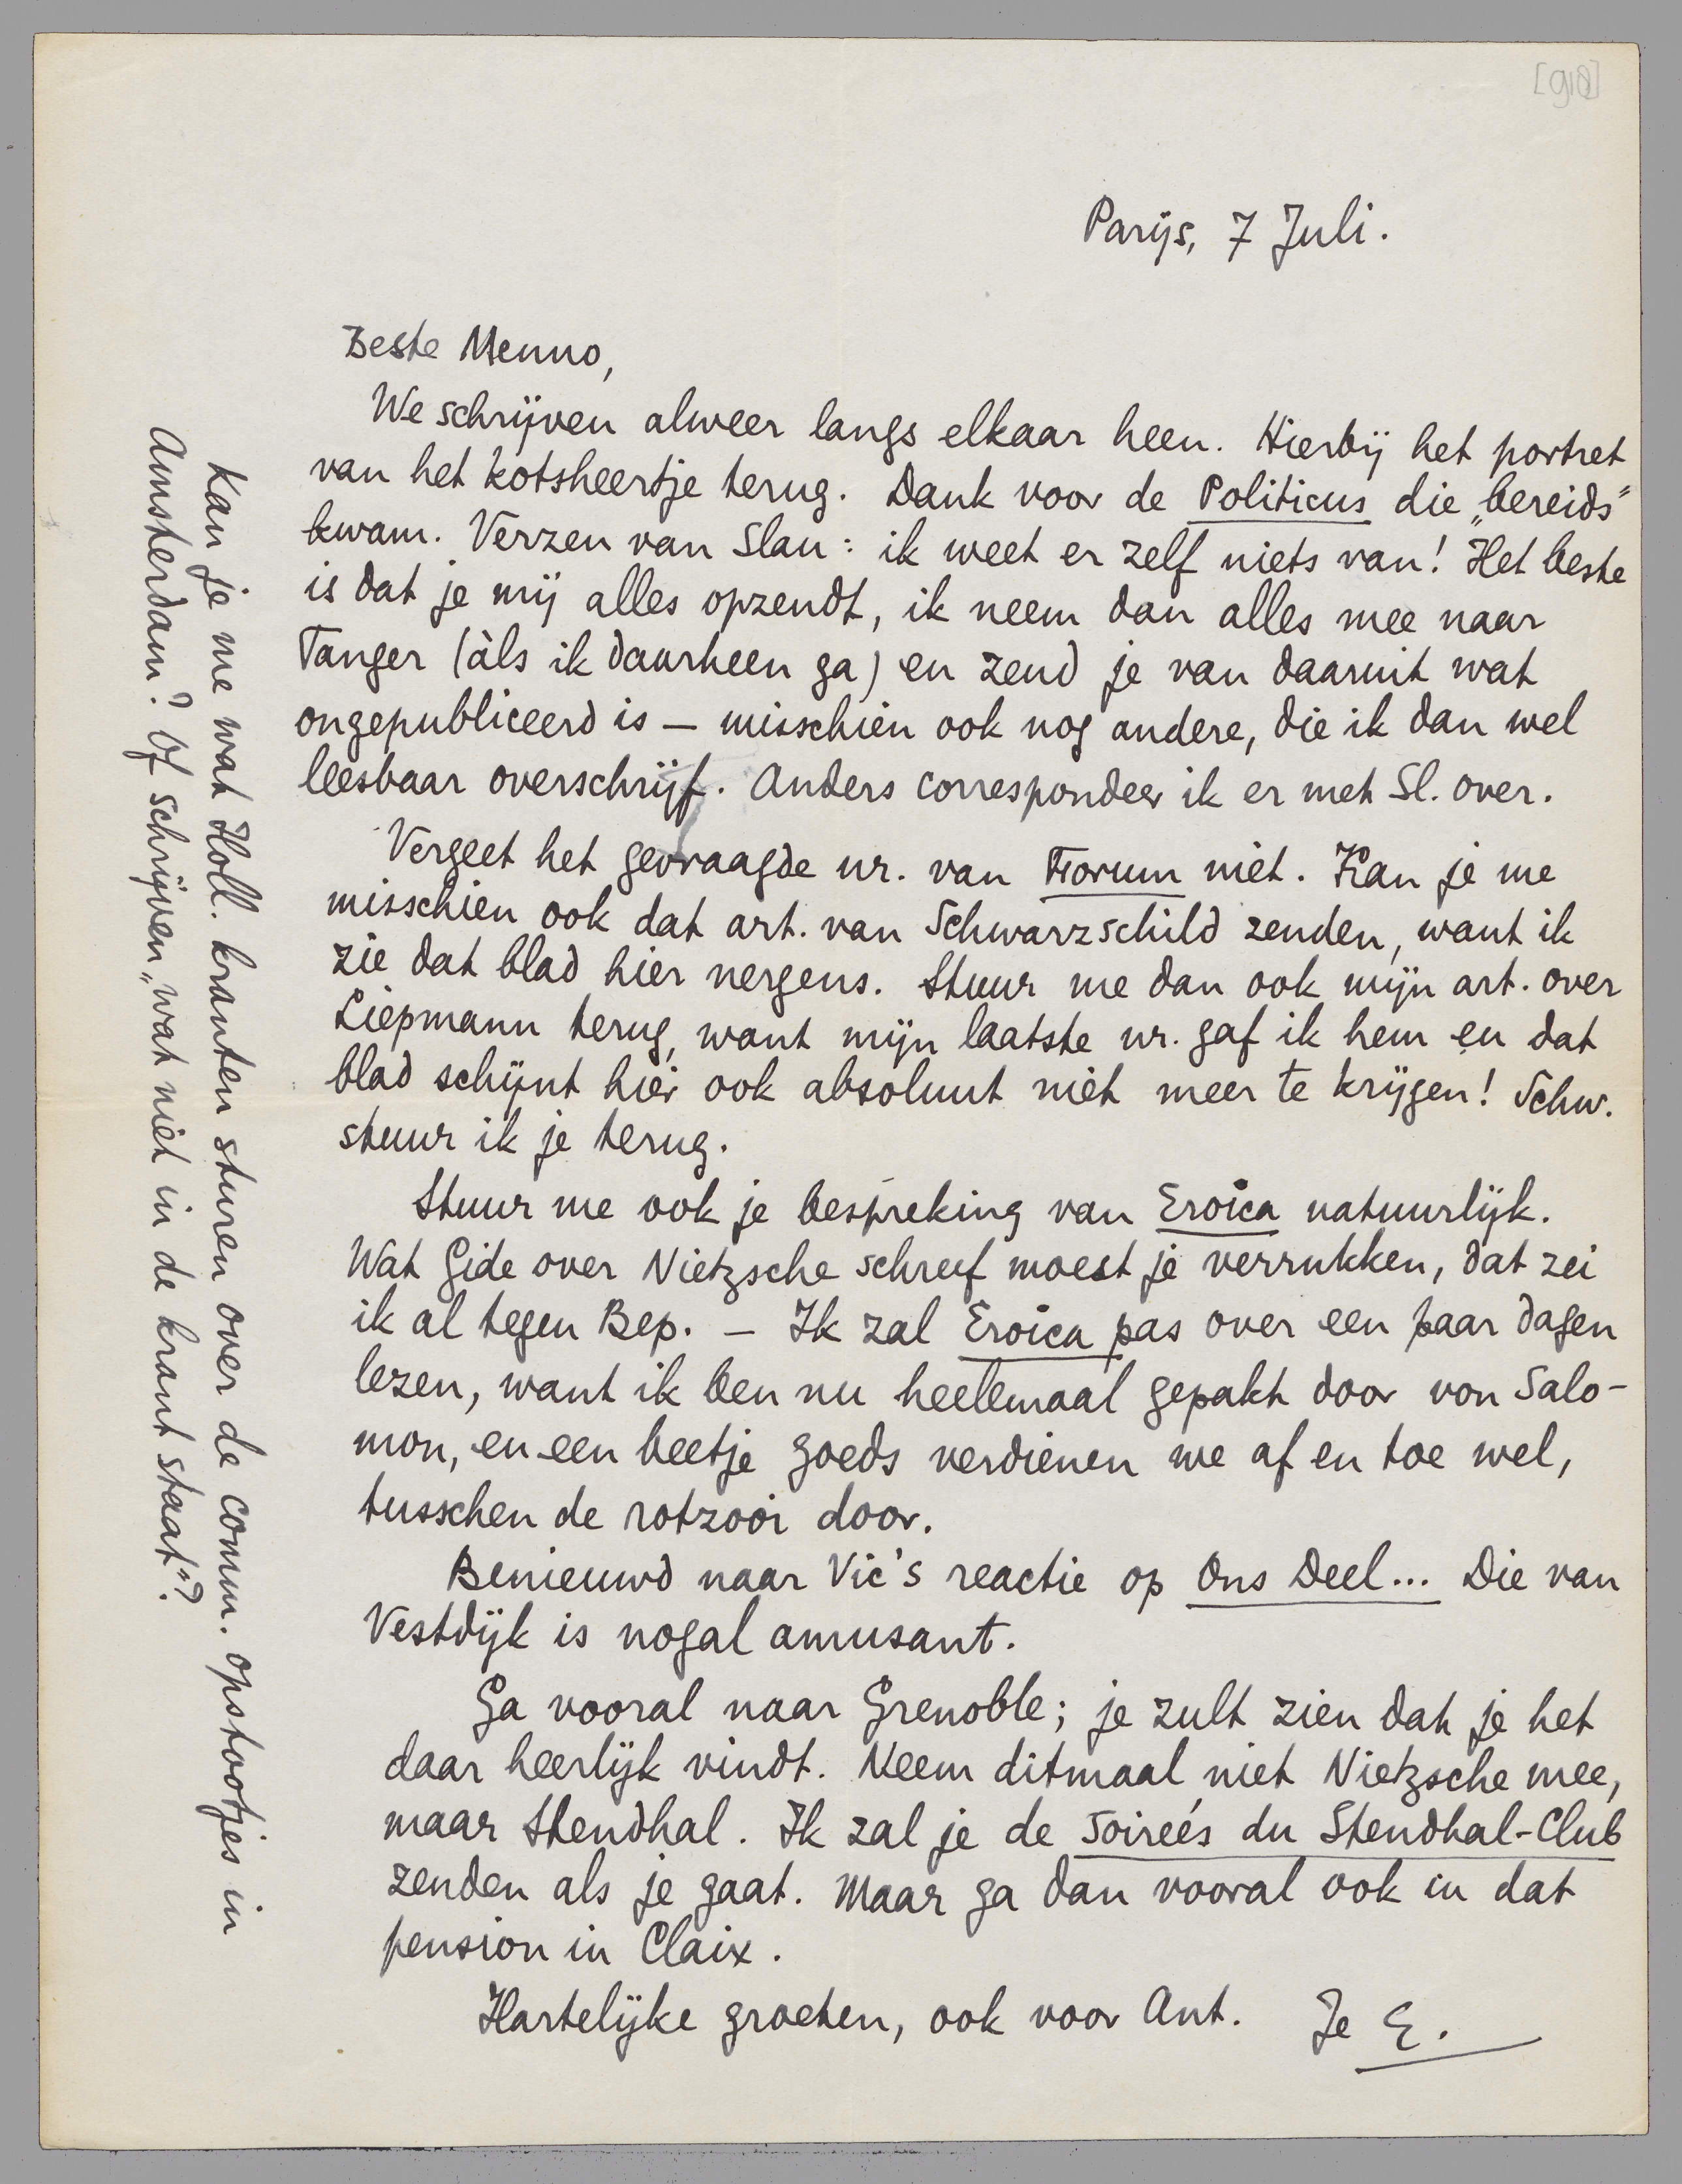 [918]
Parijs, 7 Juli.
Beste Menno,
We schrijven alweer langs elkaar heen. Hierbij het portret
van het kotsheertje terug. Dank voor de Politicus die „bereids"
kwam. Verzen van Slau: ik weet er zelf niets van! Het beste
is dat je mij alles opzendt, ik neem dan alles mee naar
Tanger (àls ik daarheen ga) en zend je van daaruit wat
ongepubliceerd is — misschien ook nog andere, die ik dan wel
leesbaar overschrijf. Anders correspondeer ik er met Sl. over.
Vergeet het gevraagde nr. van Forum niet. Kan je me
misschien ook dat art. van Schwarzschild zenden, want ik
zie dat blad hier nergens. Stuur me dan ook mijn art. over
Liepmann terug, want mijn laatste nr. gaf ik hem en dat
blad schijnt hier ook absoluut niet meer te krijgen! Schw.
stuur ik je terug.
Stuur me ook je bespreking van Eroica natuurlijk.
Wat Gide over Nietzsche schreef moest je verrukken, dat zei
ik al tegen Bep. — Ik zal Eroica pas over een paar dagen
lezen, want ik ben nu heelemaal gepakt door von Salo-
mon, en een beetje goeds verdienen we af en toe wel,
tusschen de rotzooi door.
Benieuwd naar Vic's reactie op Ons Deel... Die van
Vestdijk is nogal amusant.
Ga vooral naar Grenoble; je zult zien dat je het
daar heerlijk vindt. Neem ditmaal niet Nietzsche mee,
maar Stendhal. Ik zal je de Soirées du Stendhal-Club
zenden als je gaat. Maar ga dan vooral ook in dat
pension in Claix.
Hartelijke groeten, ook voor Ant. Je E.
Kan je me wat Holl. kranten sturen over de comm. opstootjes in
Amsterdam? Of schrijven „wat niet in de krant staat"?